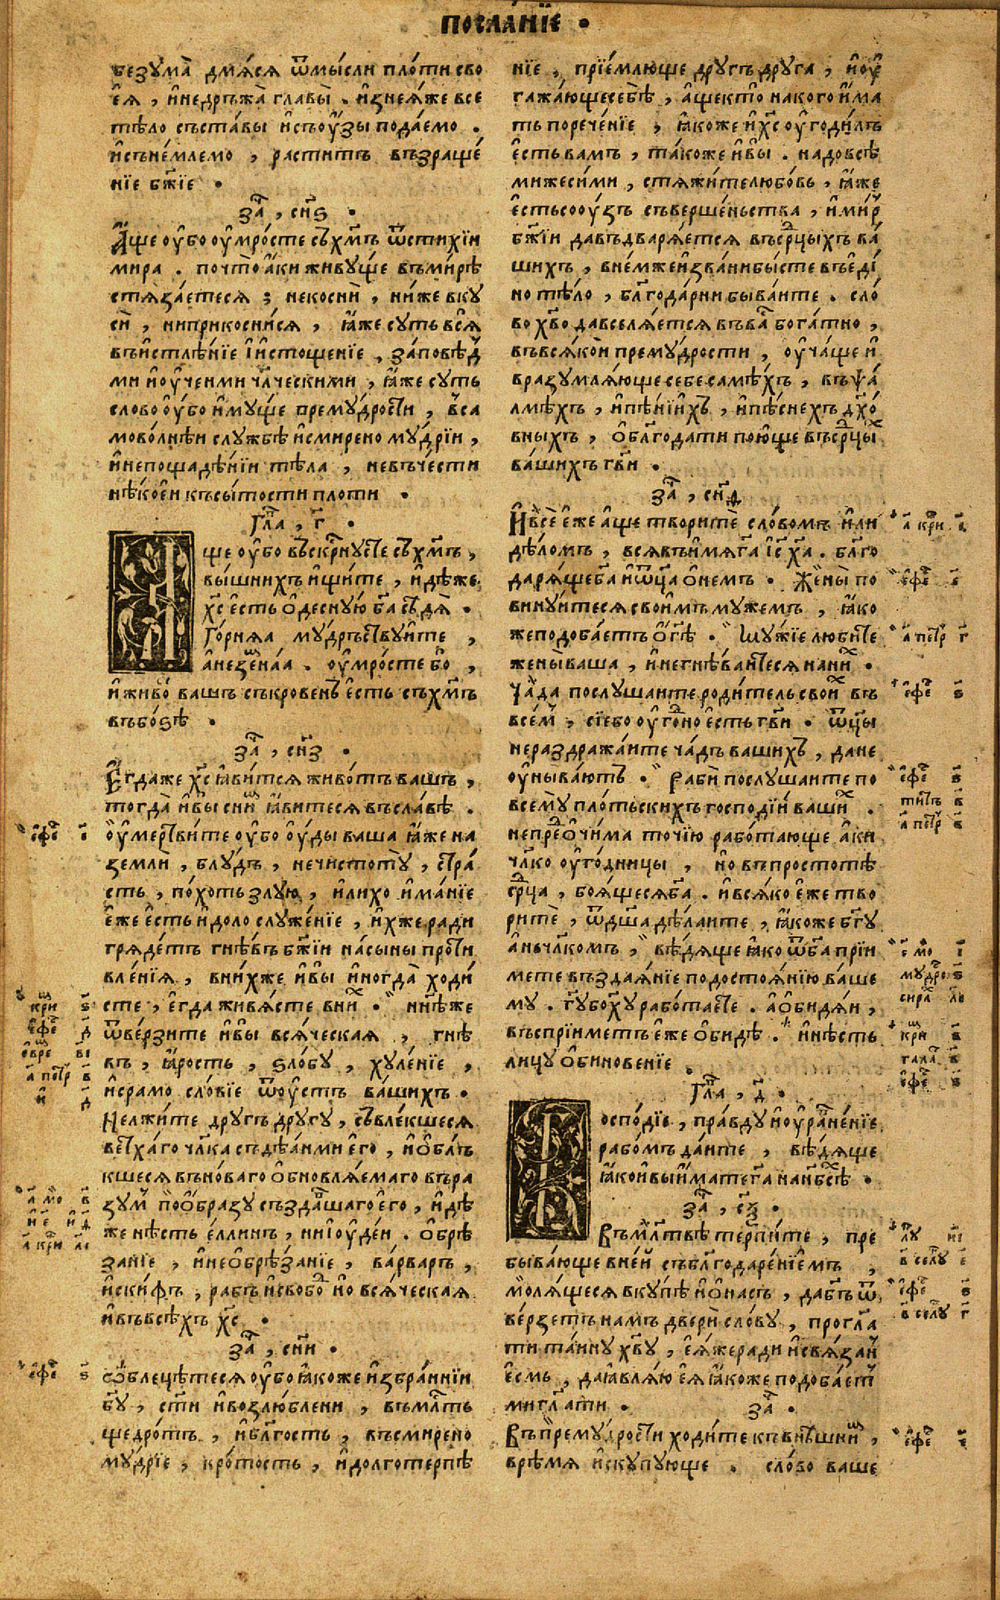 посла́нїе ·
безꙋма̀ дмѧ́сѧ ѿмы́сли пло́ти сво
еѧ̀ , и҆недръжа̀ главы̀ . и҆знеѧ́же все
тѣ́ло съста́вы и҆съоу́зы пода́емо .
и҆сънемлемо , раститъ възраще́
нїе бж҃їе .
за҄ , сн҃ѕ .
А҆́ще оу҆бо оу҆мро́сте съхм҃ъ ѿстихїи
мира . почто̀ а҆́ки живꙋще въми́рѣ
стѧза́етесѧ ; некосни̇ , ни́же вкꙋ
си̇ , ниприкосни́сѧ , ꙗ҆́же сꙋть всѧ̀
въи҆стлѣ́нїе і҆и҆стоще́нїе , за́повѣд
ми и҆оу҆че́нми чл҃ческими , ꙗ҆́же сꙋть
слово оу҆́бо и҆мꙋще премꙋ́дрости , в са
мово́лнѣи слꙋжбѣ и҆смирено мꙋ́дрїи ,
и҆непощадѣ́нїи тѣла , невъче́сти
нѣкоеи късы́тости плоти .
гла , г҃ .
А ще оу҆бо въскр҃нꙋсте съхм҃ъ ,
вы́шнихъ и҆щи́те , и҆дѣ́же
хс҃ е҆сть о҆деснꙋю б҃а сѣдѧ̀ .
Го́рнѧѧ мꙋ́дръствꙋите ,
а҆незе́мнаа . оу҆мро́сте бо ,
и҆живо́т вашъ съкровенъ е҆сть съхм҃ъ
въбо́ѕѣ .
за҄ , сн҃з .
Е҆гдаже хс҃ ꙗ҆ви́тсѧ живо́тъ вашъ ,
тогда̀ и҆вы сним ꙗ҆витесѧ въславѣ .
оу҆мертви́те оу҆бо оу҆́ды ваша ꙗ҆́же на
земли , блꙋдъ , нечистотꙋ̀ , стра́
сть , по́хоть злꙋю , и҆лихо и҆ма́нїе
е҆́же е҆́сть и҆доло слꙋже́нїе , и҆́хже ради
грѧде́тъ гнѣ́въ бж҃їи на́сыны проти
вле́нїѧ , вни́хже и҆вы̀ и҆ногда̀ ходи́
сте , е҆гда живѧ́сте вних . нн҃ѣже
ѿве́рзите и҆вы̀ всѧ́ческаа , гнѣ
въ , ꙗ҆́рость , ѕло́бꙋ , хꙋле́нїе ,
и҆срамо сло́вїе ѿоу҆́стъ ва́шихъ .
Нелжи́те дрꙋгъ дрꙋгꙋ , съвле́кшесѧ
ве́тхаго чл҃ка съдѣа́нми его̀ , и҆о҆блъ
кшесѧ вънова́го о҆бновлѧ́емаго въра
зꙋм по о҆́бразꙋ създа́вшаго его̀ , и҆дѣ
же нѣсть е҆́ллинъ , ниі҆оу҆де́и . о҆брѣ
за́нїе , и҆нео҆брѣ́занїе , ва́рваръ ,
и҆ски́ѳъ , рабъ и҆свобод но всѧ́ческаа
и҆въвсѣ́хъ хс҃ .
за҄ , сн҃и .
со҆блецѣ́тесѧ оу҆бо ꙗ҆́коже и҆збра́ннїи
бг҃ꙋ , ст҃и и҆возлю́блени , въмлⷭ҇ть
щедро́тъ , и҆бла́гость , въсмирено
мꙋ́дрїе , кро́тость , и҆долготерпѣ
нїе , прїе́млюще дрꙋгъ дрꙋга , и҆оу
гажа́ющесебѣ̀ , а҆́щекто̀ накого и҆́ма
ть порече́нїе , ꙗ҆́коже и҆хс҃ оу҆годи́лъ
е҆́сть вамъ , та́коже и҆вы̀ . надовсѣ́
мижеси́ми , стѧжи́те любо́вь , ꙗ҆́же
е҆́стьсооу́зъ съверше́ньства , и҆мир
бж҃їи давъдварѧ́етсѧ въсерцыхъ ва́
шихъ , вне́мже и҆зва́ни бы́сте въе҆ди́
но тѣ́ло , бл҃года́рни быва́ите . сло́
во хв҃о давселѧ́етсѧ въвас бога́тно ,
въвсѧ́кои премꙋ́дрости , оу҆ча́ще и҆
вразꙋмлѧ́юще себе самѣ́хъ , въѱа
лмѣ́хъ , и҆пѣ́нїихъ , и҆пѣ́снехъ дх҃о́
вныхъ , о҆бл҃года́ти пою́ще въсерцых
ва́шихъ гв҃и .
за҄ , сн҃ѳ .
И҆всѐ е҆́же а҆́ще творите̇ сло́вомъ и҆ли
дѣ́ломъ , всѧвъи҆́мѧ г҃а іс҃ х҃а . бл҃го
дарѧ́ще б҃а и҆ѿц҃а о҆не́мъ . Жены̀ по
винꙋ́итесѧ свои́мъ мꙋже́мъ , ꙗ҆́ко
жеподоба́етъ о҆г҃ѣ . Мꙋжїе люби́те
жены̀ ваша , и҆негнѣ́ваитесѧ наних .
Ча́да послꙋшаите роди́тель свои́х въ
всем , сїе бо оу҆го́дно е҆́сть гв҃и . ѿц҃ы
нераздража́ите ча́дъ вашихъ , дане
оу҆ныва́ютъ . Раби̇ послꙋшаите по
всемꙋ̀ пло́тьскихъ господїи ваших .
непредо҆чима точїю рабо́тающе а҆́ки
чл҃ко оу҆го́дницы , но въпростотѣ̀
срц҃а , боѧ́щесѧ б҃а . и҆всѧ́ко е҆́же тво
рите̇ , ѿдш҃а дѣ́лаите , ꙗ҆́коже бг҃ꙋ
а҆нечл҃комъ , вѣ́дѧще ꙗ҆́ко ѿб҃а прїи
мете въздаѧ́нїе подостоѧ́нїю ва́ше
мꙋ . гꙋ҃бо хꙋ҃ рабо́таете . а҆о҆би́дѧи ,
въспрїиметъ е҆́же о҆би́дѣ . и҆нѣ́сть
лицꙋ̀ о҆бинове́нїе .
гла , д҃ .
Г оспо́дїе , пра́вдꙋ и҆оу҆равне́нїе
рабо́мъ да́ите , вѣ́дѧще
ꙗ҆́коивыи҆матег҃а нан҃бсѣ .
за҄ , сѯ҃ .
Въмл҃твѣ терпи́те , пре
быва́юще вне́и събл҃годаре́нїемъ ,
мо́лѧщесѧ вкꙋ́пѣ и҆о҆на́съ , дабг҃ъ ѿ
ве́рзетъ намъ две́ри сло́вꙋ , прогла
ти та́инꙋ хв҃ꙋ , еѧ́же ради и҆свѧзан
е҆́смь , даꙗ҆влю ею ꙗ҆́коже подоба́ет
ми гл҃ати . за҄ .
Въпремꙋ́дрости ходи́те къвнѣшним ,
врѣ́мѧ и҆скꙋпꙋюще . сло́во ваше